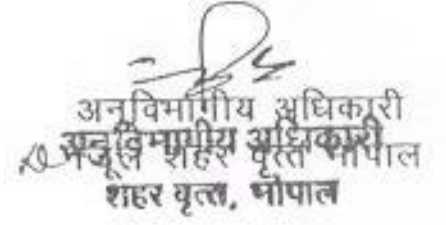 अनुविभागीय अधिकारी
अनुविभागीय अधिकारी
नजूल शहर वृत्त भोपाल
शहर वृत्त, भोपाल